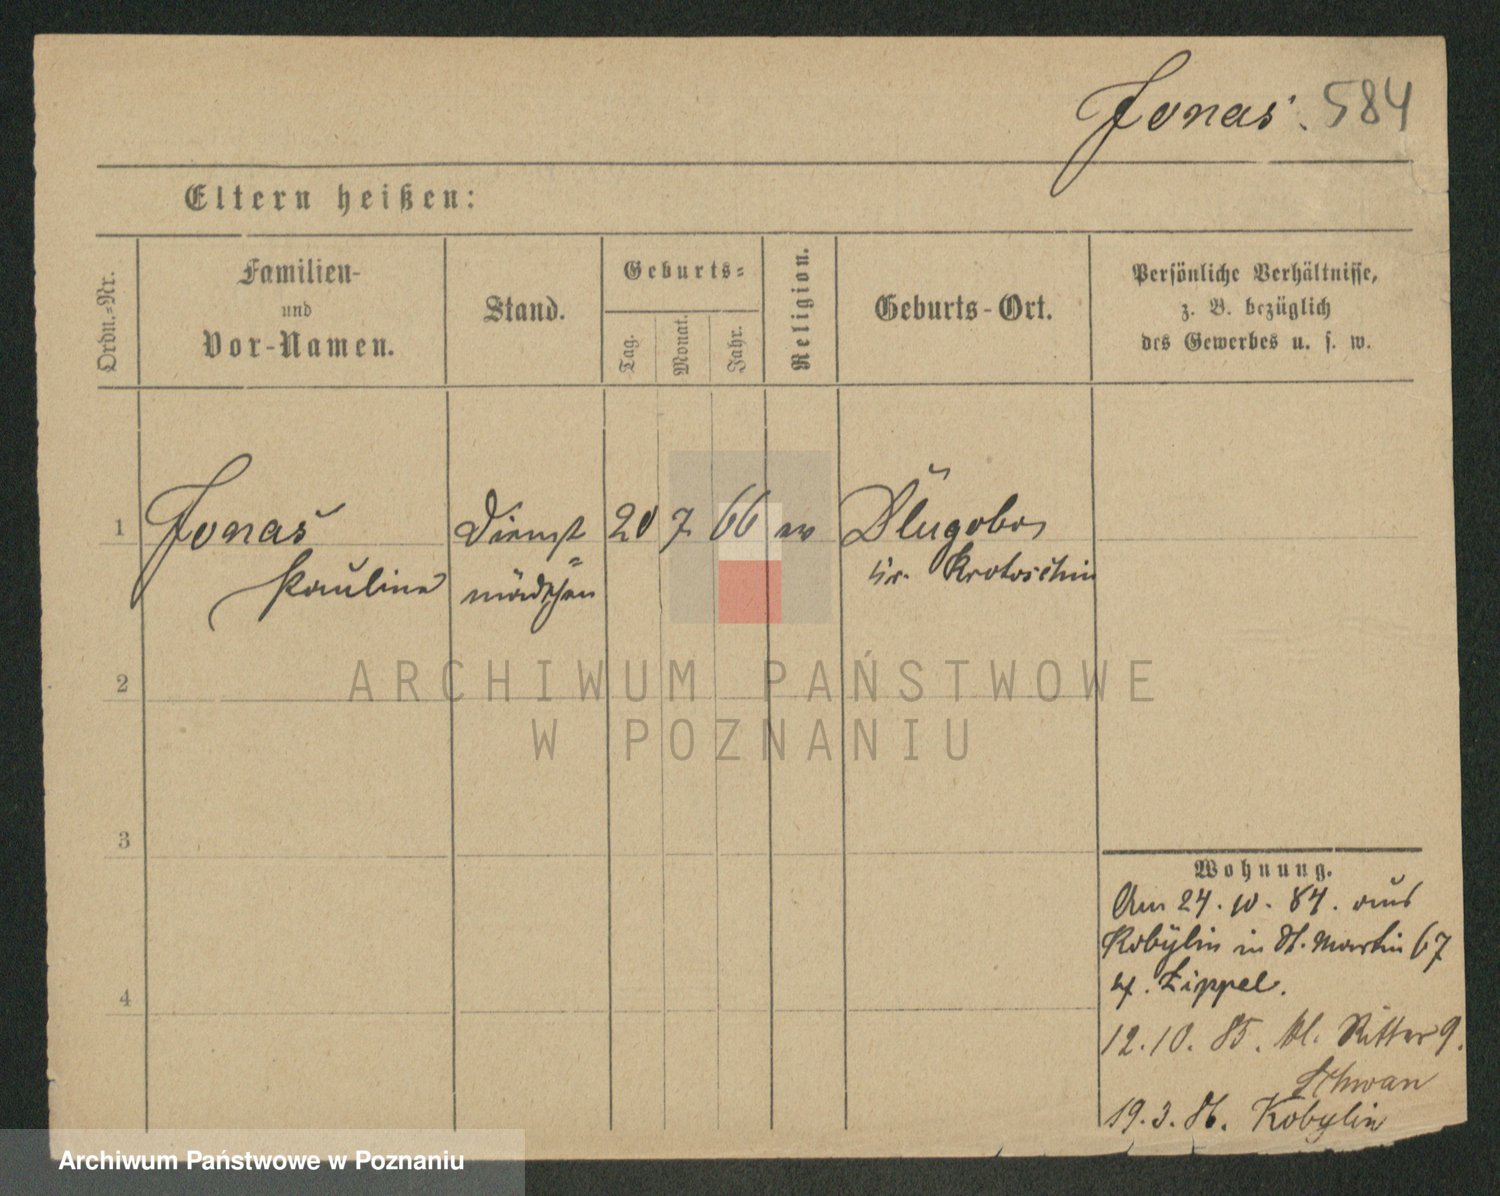 Jonas. 584
Eltern heißen:
Ordn.-Nr.
Familien-
und
Vor-Namen.
Stand.
Geburts-
Tag.
Monat.
Jahr.
Religion.
Geburts-Ort.
Persönliche Verhältnisse,
z. B. bezüglich
des Gewerbes u. s. w.
1 Jonas Dienst 20 7 66 ev Dlugobor
Pauline =mädchen Kr. Krotoschin
2
ARCHIWUM PAŃSTWOWE
W POZNANIU
3
4
Wohnung.
Am 24.10.84. aus
Kobylin in St. Martin 67
Lippel.
12.10.85. kl. Ritter 9.
Schwan
19.3.86. Kobylin
Archiwum Państwowe w Poznaniu